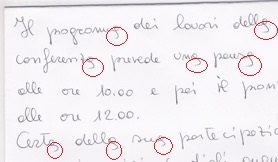 Il pogramma dei lavori della
conferenza prevede una pausa
alle ore 10.00 e poi il
alle ore 12.00.
Certa della sua partecipazio